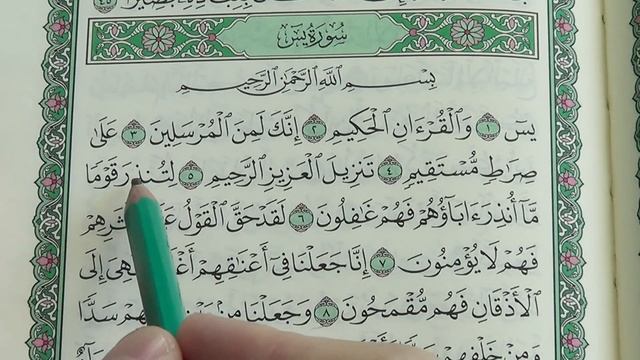 سورة يس
بِسْمِ ٱللَّهِ ٱلرَّحْمَٰنِ ٱلرَّحِيمِ
يسٓ ١ وَٱلْقُرْءَانِ ٱلْحَكِيمِ ٢ إِنَّكَ لَمِنَ ٱلْمُرْسَلِينَ ٣ عَلَىٰ
صِرَٰطٍ مُّسْتَقِيمٍ ٤ تَنزِيلَ ٱلْعَزِيزِ ٱلرَّحِيمِ ٥ لِتُنذِرَ قَوْمًا
مَّآ أُنذِرَ ءَابَآؤُهُمْ فَهُمْ غَٰفِلُونَ ٦ لَقَدْ حَقَّ ٱلْقَوْلُ
فَهُمْ لَا يُؤْمِنُونَ ٧ إِنَّا جَعَلْنَا فِىٓ أَعْنَٰقِهِمْ فَهِىَ إِلَى
ٱلْأَذْقَانِ فَهُم مُّقْمَحُونَ ٨ وَجَعَلْنَا مِنۢ سَدًّا
وَمِنْ خَلْفِهِمْ